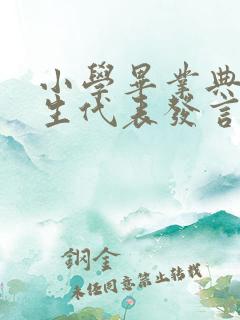 小學畢業典
生代表發言
鋼金
未經同意禁止轉載